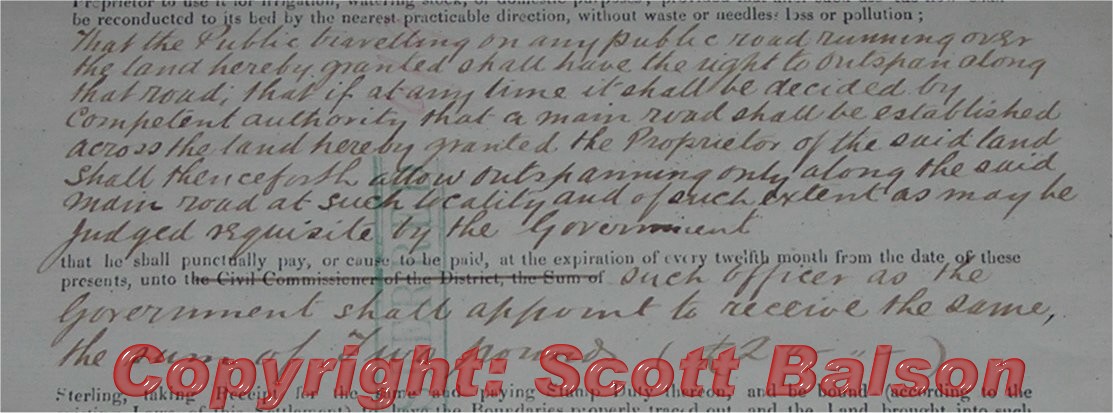 Proprietor to use it for irrigation, watering stock, or domestic purposes, provided
be reconducted to its bed by the nearest practicable direction, without waste or needless loss or pollution ;
That the Public travelling on any public road running over
the land hereby granted shall have the right to outspan along
that road; that if at any time it shall be decided by
Competent authority that a main road shall be established
across the land hereby granted the Proprietor of the said land
shall thenceforth allow outspanning only along the said
main road at such locality and of such extent as may be
judged requisite by the Government
that he shall punctually pay, or cause to be paid, at the expiration of every twelfth month from the date of these
presents, unto the Civil Commissioner of the District, the Sum of such officer as the
Government shall appoint to receive the same,
the Sum of Two pounds (£2 - " - )
Copyright: Scott Balson
Sterling, taking Receipt for the same and paying Stamp Duty thereon, and be bound (according to the